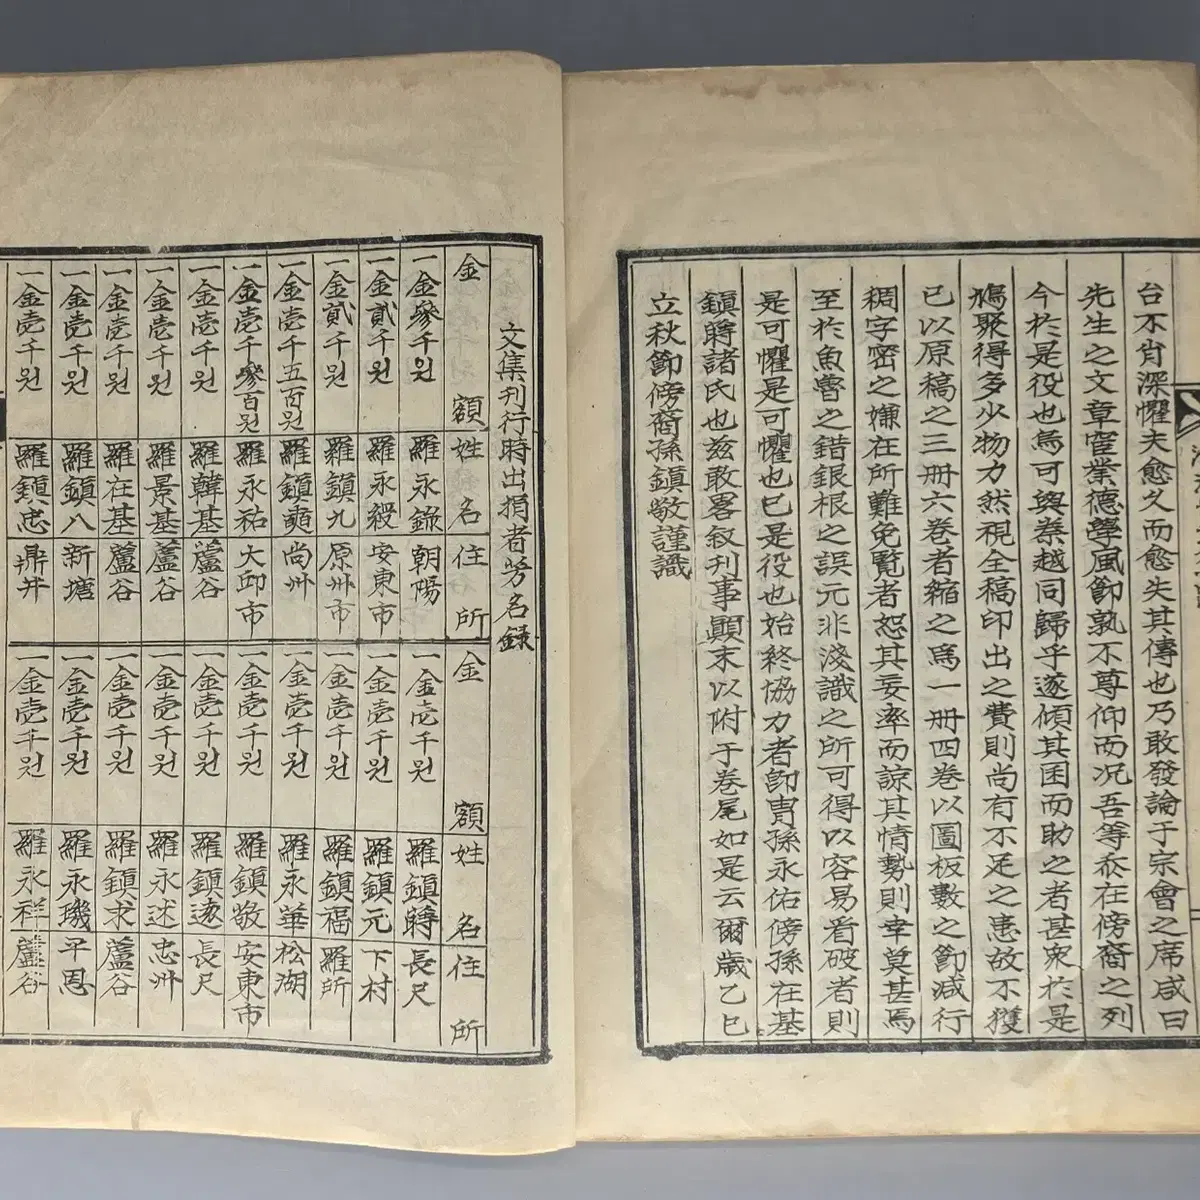 台不肖深懼夫愈久而愈失其傳也乃敢發論于宗會之席咸曰
先生之文章宦業德學風節孰不尊仰而况吾等忝在傍裔之列
今於是役也焉可與秦越同歸乎遂傾其囷而助之者甚衆於是
鳩聚得多少物力然視全稿印出之費則尚有不足之患故不獲
已以原稿之三册六卷者縮之爲一册四卷以圖板數之節减行
稠字密之嫌在所難免覽者恕其妄率而諒其情勢則幸莫甚焉
至於魚魯之錯銀根之誤元非淺識之所可得以容易看破者則
是可懼是可懼也已是役也始終協力者卽胄孫永佑傍孫在基
鎭疇諸氏也玆敢畧叙刊事顚末以附于卷尾如是云爾歲乙巳
立秋節傍裔孫鎭敬謹識
文集刊行時出捐者芳名録
金額 姓名 住所
一金參千원 羅永錄 朝陽
一金貳千원 羅永綬 安東市
一金貳千원 羅鎭九 原州市
一金壱千五百원 羅鎭奭 尙州
一金壱千參百원 羅永祐 大邱市
一金壱千원 羅韓基 蘆谷
一金壱千원 羅景基 蘆谷
一金壱千원 羅在基 蘆谷
一金壱千원 羅鎭八 新塘
一金壱千원 羅鎭忠 鼎井
金額 姓名 住所
一金壱千원 羅鎭疇 長尺
一金壱千원 羅鎭元 下村
一金壱千원 羅鎭福 羅所
一金壱千원 羅永華 松湖
一金壱千원 羅鎭敬 安東市
一金壱千원 羅鎭遠 長尺
一金壱千원 羅永述 忠州
一金壱千원 羅鎭求 蘆谷
一金壱千원 羅永璣 平恩
一金壱千원 羅永祥 蘆谷